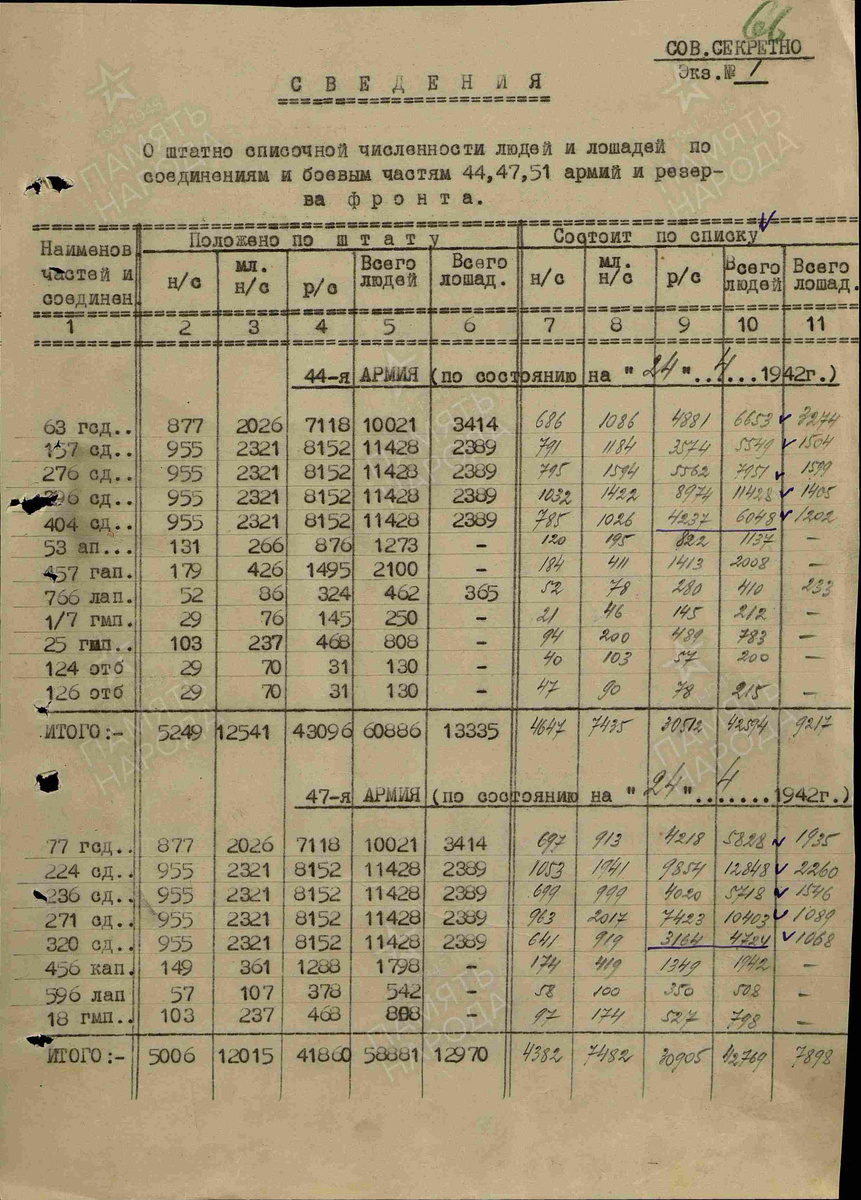 СОВ.СЕКРЕТНО
Экз.№ 1
С В Е Д Е Н И Я
О штатно списочной численности людей и лошадей по
соединениям и боевым частям 44,47,51 армий и резер-
ва ф р о н т а.
Наименов частей и соединен. | Положено по ш т а т у | Состоит по списку
н/с | мл. н/с | р/с | Всего людей | Всего лошад. | н/с | мл. н/с | р/с | Всего людей | Всего лошад.
1 | 2 | 3 | 4 | 5 | 6 | 7 | 8 | 9 | 10 | 11
44-я АРМИЯ (по состоянию на "24"..4...1942г.)
63 гсд.. 877 2026 7118 10021 3414 686 1086 4881 6653 3274
157 сд.. 955 2321 8152 11428 2389 791 1184 3574 5549 1504
276 сд.. 955 2321 8152 11428 2389 795 1594 5562 7951 1599
396 сд.. 955 2321 8152 11428 2389 1032 1422 8974 11428 1405
404 сд.. 955 2321 8152 11428 2389 785 1026 4237 6048 1202
53 ап... 131 266 876 1273 - 120 195 822 1137 -
457 гап. 179 426 1495 2100 - 184 411 1413 2008 -
766 лап. 52 86 324 462 365 52 78 280 410 233
1/7 гмп. 29 76 145 250 - 21 46 145 212 -
25 гмп.. 103 237 468 808 - 94 200 489 783 -
124 отб 29 70 31 130 - 40 103 57 200 -
126 отб 29 70 31 130 - 47 90 78 215 -
ИТОГО:- 5249 12541 43096 60886 13335 4647 7435 30512 42594 9217
47-я АРМИЯ (по состоянию на "24"...4...1942г.)
77 гсд.. 877 2026 7118 10021 3414 697 913 4218 5828 1935
224 сд.. 955 2321 8152 11428 2389 1053 1941 9854 12848 2260
236 сд.. 955 2321 8152 11428 2389 699 999 4020 5718 1546
271 сд.. 955 2321 8152 11428 2389 963 2017 7423 10403 1089
320 сд.. 955 2321 8152 11428 2389 641 919 3164 4724 1068
456 кап. 149 361 1288 1798 - 174 419 1349 1942 -
596 лап 57 107 378 542 - 58 100 350 508 -
18 гмп.. 103 237 468 808 - 97 174 527 798 -
ИТОГО:- 5006 12015 41860 58881 12970 4382 7482 30905 42769 7898